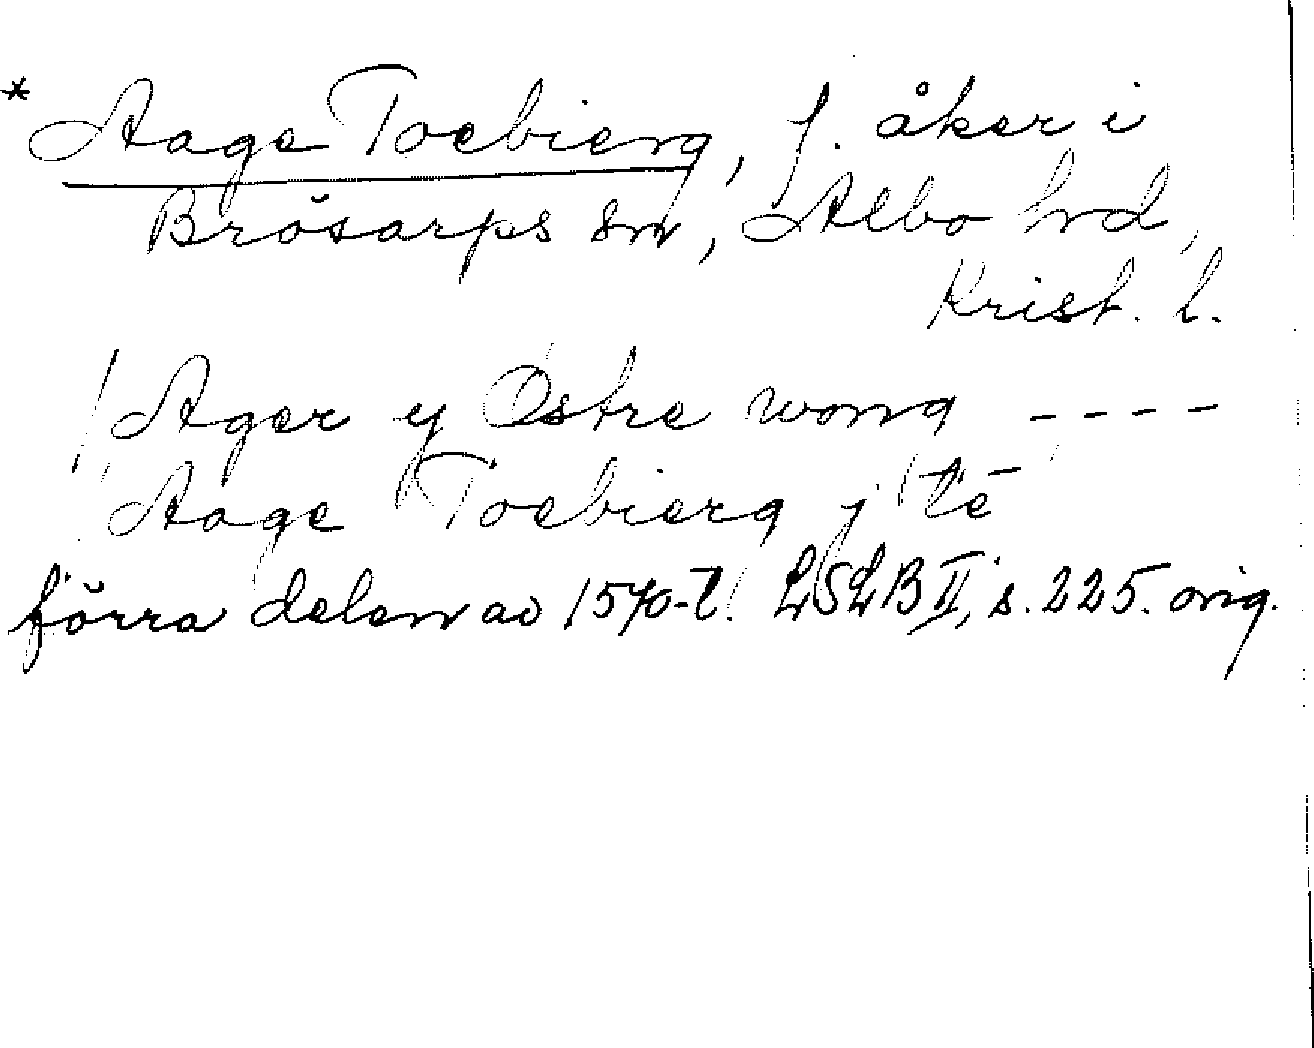 * Aage Toebierg, f. åker i
Brösarps sn, Albo hd,
Krist. l.
/ Ager y Østre wong ----
Aage Toebierg j té
förra delen av 1570-t. LSLB II, s. 225. orig.